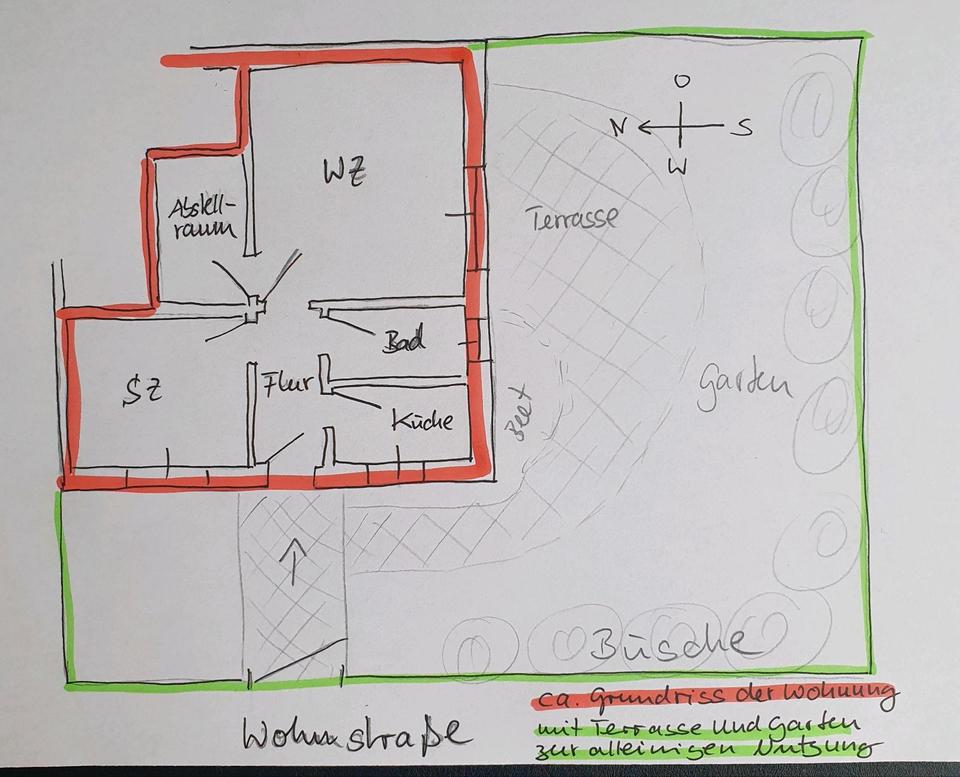 O
N S
W
WZ
Abstell-
raum
Terrasse
Bad
SZ
Flur
Garten
Küche
Beet
Büsche
ca. Grundriss der Wohnung
mit Terrasse und Garten
zur alleinigen Nutzung
Wohnstraße